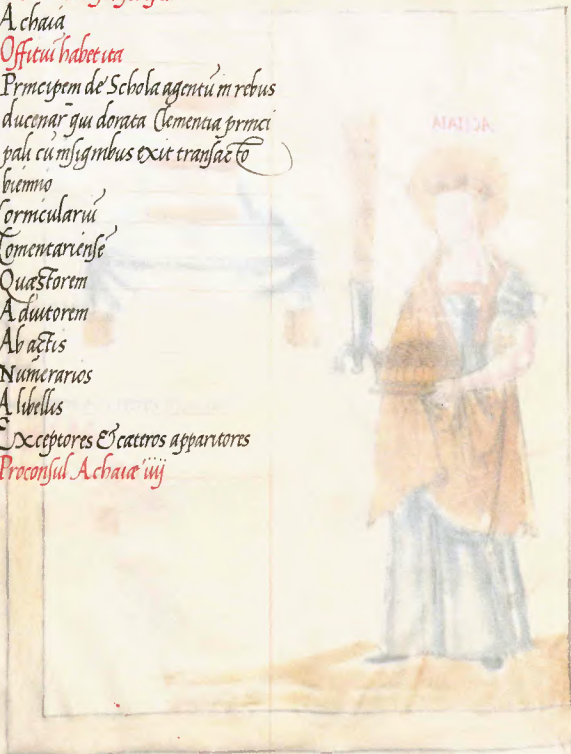 Achaia
Offitiū habet ita
Principem de Schola agentū in rebus
ducenar qui dorata Clementia princi
pali cū insignibus exit transacto
biennio
Corniculariū
Comentariensē
Quæstorem
Adiutorem
Ab actis
Numerarios
A libellis
Exceptores & cæteros apparitores
Proconsul Achaiæ iiij
ACHAIA